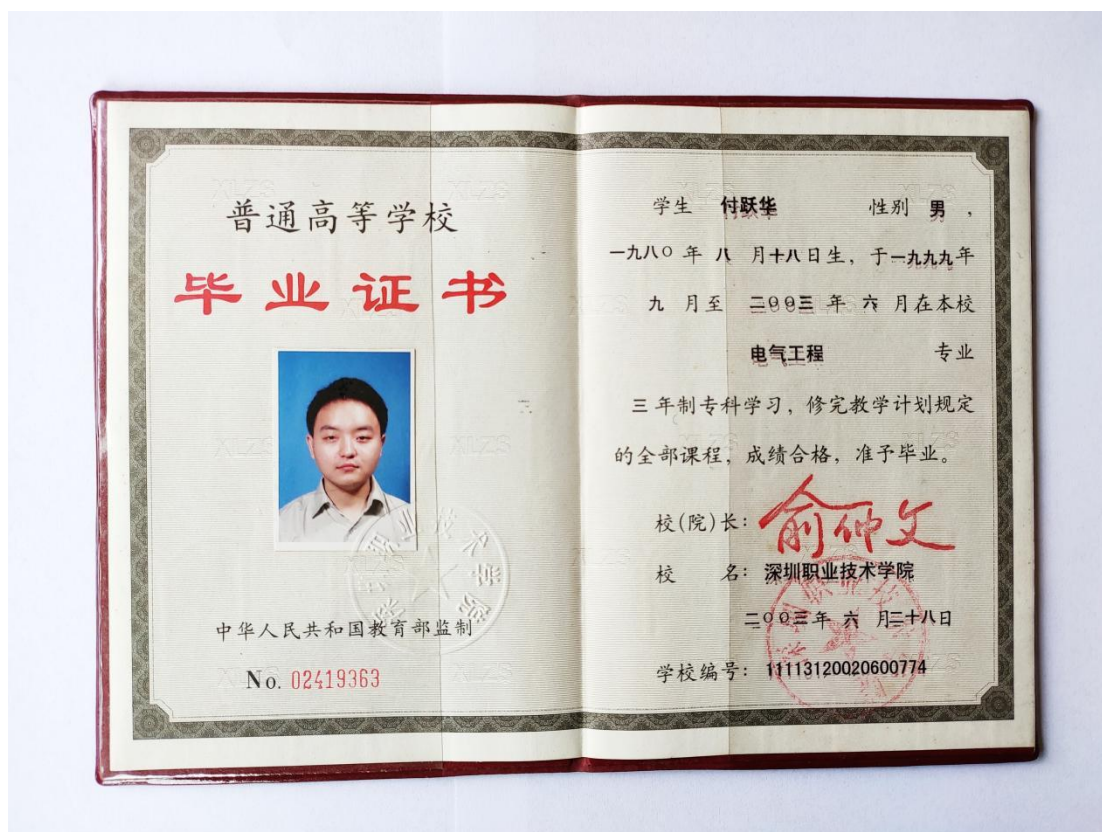 普通高等学校
毕业证书
中华人民共和国教育部监制
No. 02419363
学生 付跃华 性别 男，
一九八〇年 八 月十八日生，于一九九九年
九 月至 二00三 年 六 月在本校
电气工程 专业
三 年制专科学习，修完教学计划规定
的全部课程，成绩合格，准予毕业。
校(院)长：俞仲文
校 名：深圳职业技术学院
二00三年 六 月二十八日
学校编号：11113120020600774